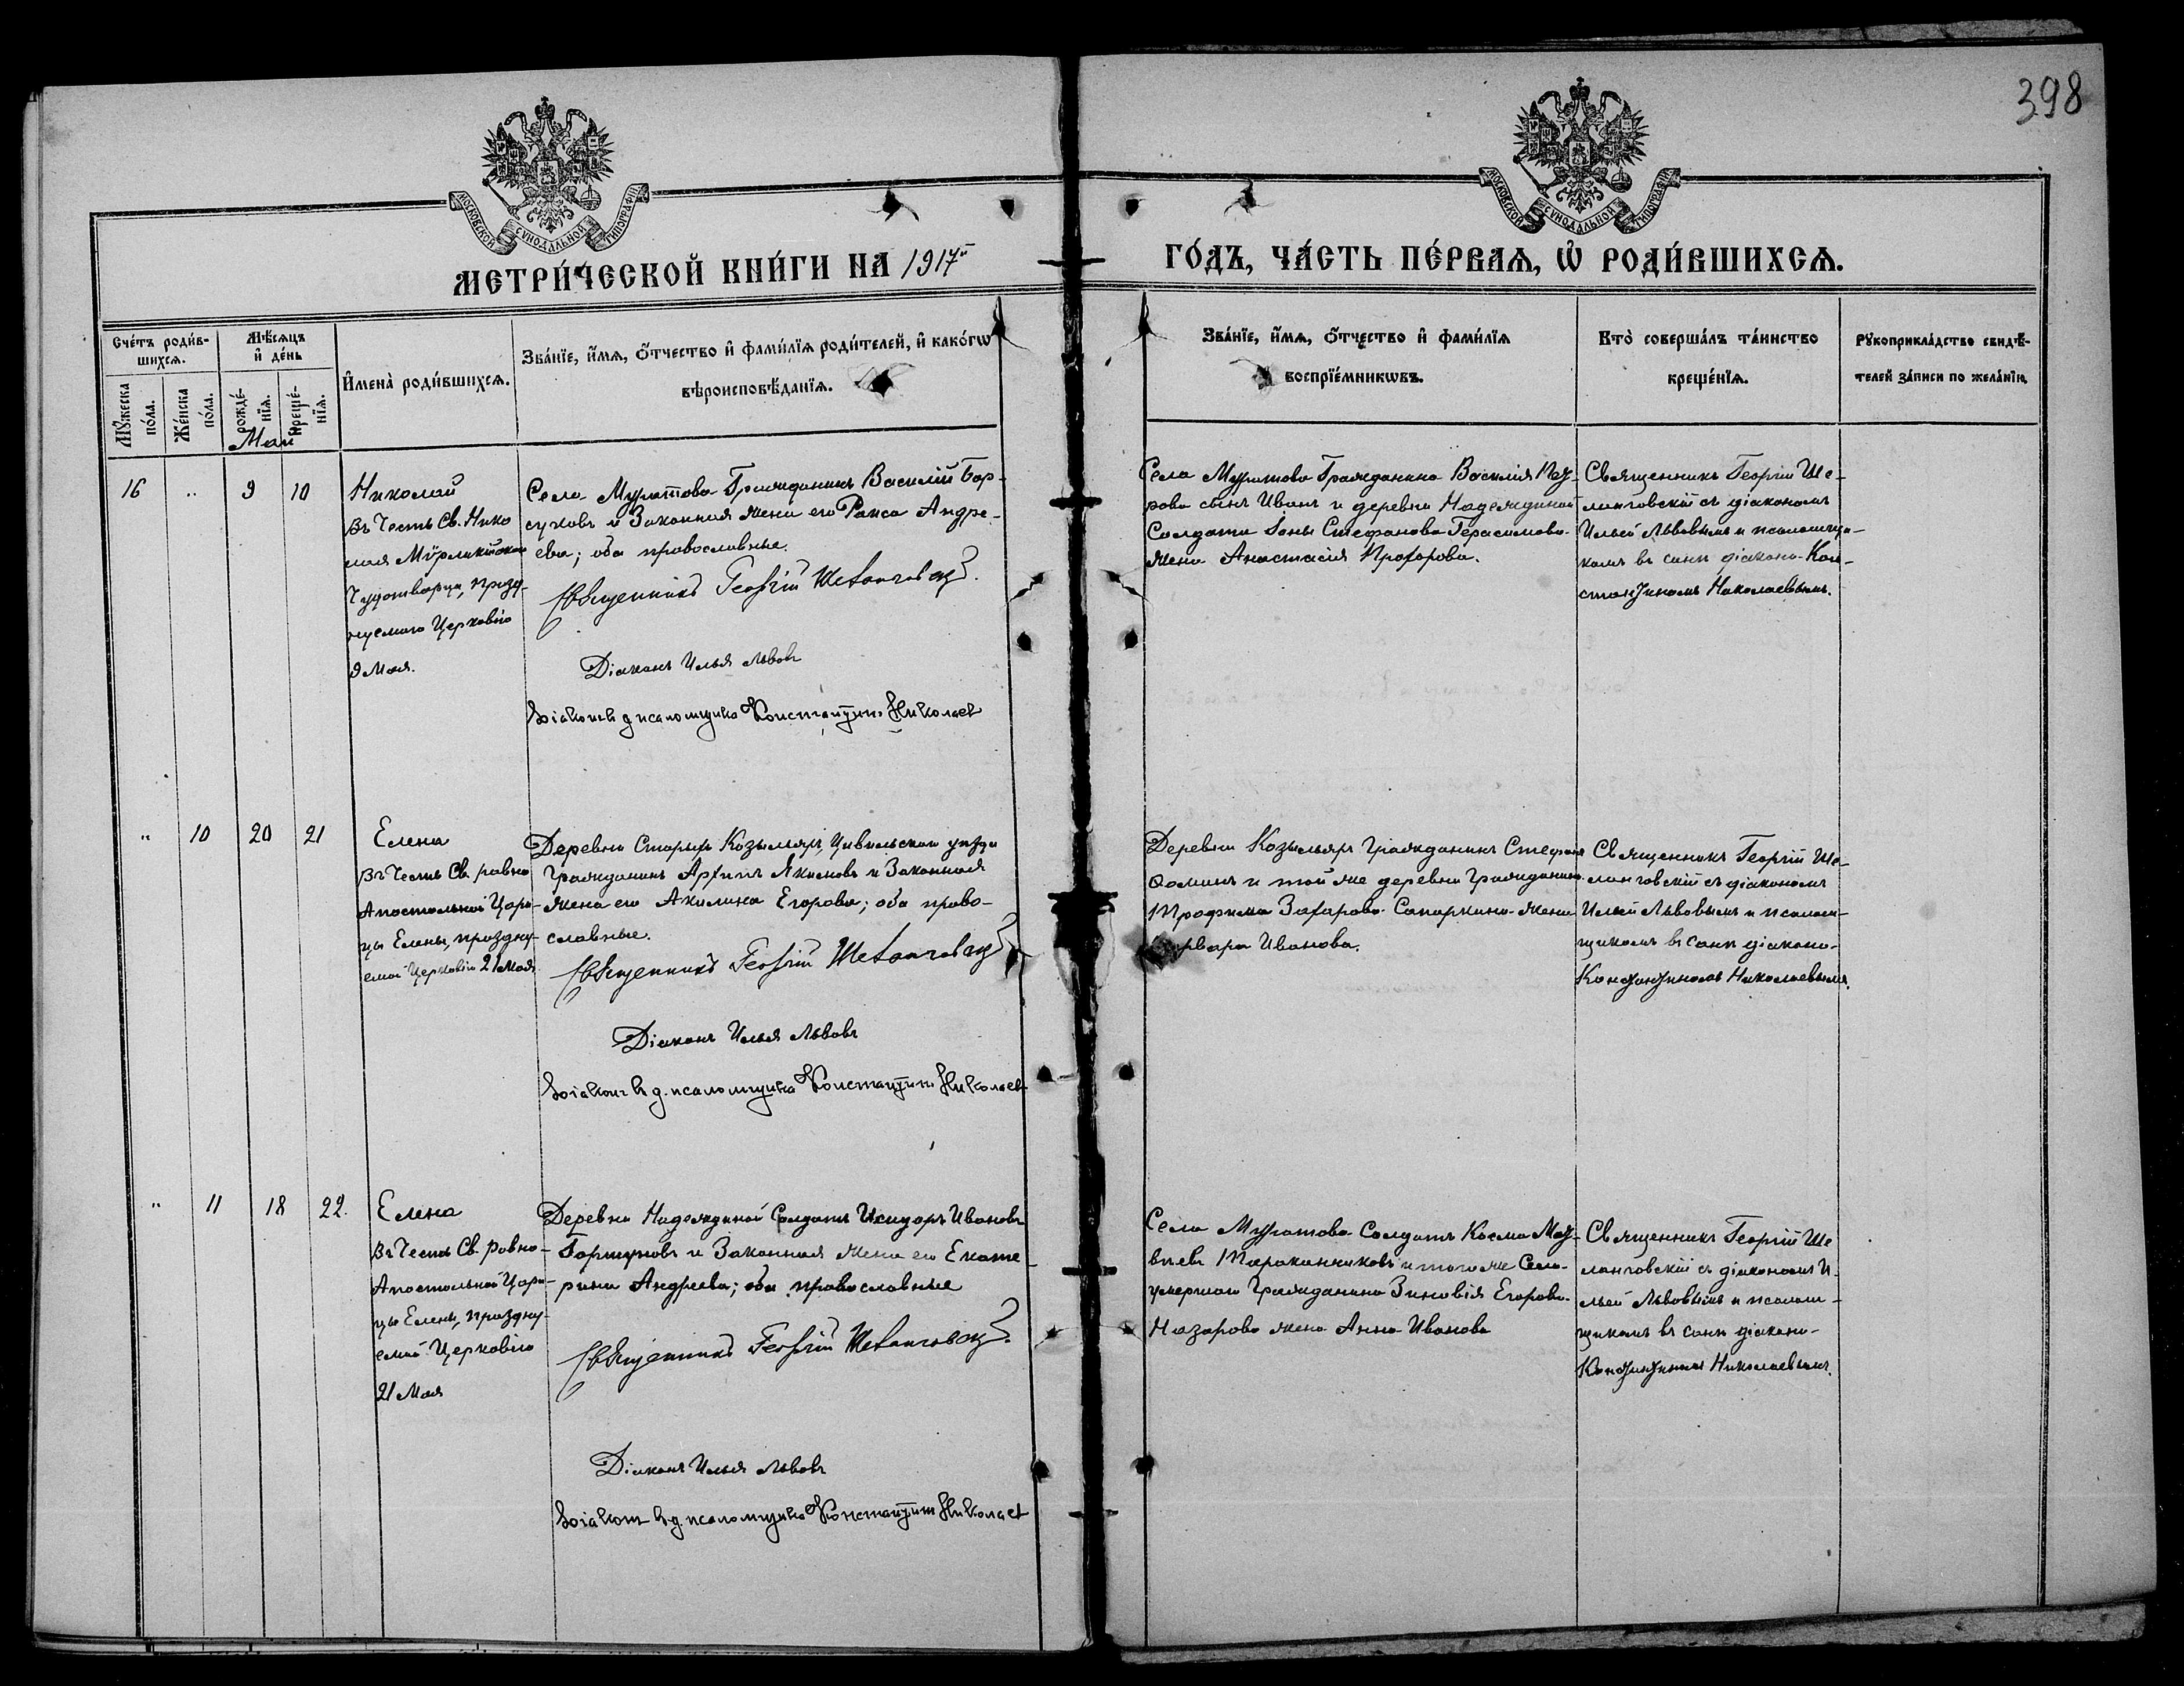 398
МОСКОВСКОЙ СѴНОДАЛЬНОЙ ТИПОГРАФІИ
МОСКОВСКОЙ СѴНОДАЛЬНОЙ ТИПОГРАФІИ
МЕТРИ́ЧЕСКОЙ КНИ́ГИ НА 1917й
ГО́ДЪ, ЧА́СТЬ ПЕ́РВАѦ, Ѡ҆ РОДИ́ВШИХСѦ.
Сче́тъ роди́в-
шихсѧ.
Мꙋ́жеска
по́ла.
Же́нска
по́ла.
Мѣ́сѧцъ
и҆ де́нь
рожде́-
нїѧ.
креще́-
нїѧ.
И҆мена̀ роди́вшихсѧ.
Зва́нїе, и҆́мѧ, ѻ҆́тчество и҆ фами́лїѧ роди́телей, и҆ како́гѡ
вѣроисповѣ́данїѧ.
Зва́нїе, и҆́мѧ, ѻ҆́тчество и҆ фами́лїѧ
воспрїе́мникѡвъ.
Кто̀ соверша́лъ та́инство
креще́нїѧ.
Рꙋкоприкла́дство свидѣ́-
телей за́писи по жела́нїю.
Май
16 " 9 10
Николай
въ Честь Св. Нико
лая Мѵрликійска
Чудотворца, празд-
нуемаго Церковію
9 Мая.
Села Муратова Гражданинъ Василій Бар-
суковъ и Законная жена его Раиса Андре-
ева; оба православные.
Священникъ Георгій Шеланговскій.
Діаконъ Илья Львовъ
Діаконъ в д. псаломщика Константинъ Николаев
Села Муратова Гражданина Василія Наз-
рова сынъ Иванъ и деревни Надеждиной
Солдата Іоны Стефанова Герасимова
жена Анастасія Прохорова.
Священникъ Георгій Ше-
ланговскій съ діакономъ
Ильей Львовымъ и псаломщи-
комъ въ санѣ діакона Кон-
стантиномъ Николаевымъ.
" 10 20 21
Елена
въ Честь Св. равно
Апостольной Цари-
цы Елены, праздну-
емой Церковію 21 Мая
Деревни Старыхъ Козыльяръ, Цивильскаго уезда
Гражданинъ Архипъ Якимовъ и Законная
жена его Акилина Егорова; оба право-
славные.
Священникъ Георгій Шеланговскій
Діаконъ Илья Львовъ
Діаконъ в д. псаломщика Константинъ Николаев
Деревни Козыльяръ Гражданинъ Стефанъ
Ѳоминъ и той же деревни Гражданина
Трофима Захарова Сапоркина жена
Варвара Иванова.
Священникъ Георгій Ше-
ланговскій съ діакономъ
Ильей Львовымъ и псалом-
щикомъ въ санѣ діакона
Константиномъ Николаевымъ.
" 11 18 22.
Елена
въ Честь Св. Равно-
Апостольной Цари-
цы Елены, праздну-
емой Церковію
21 Мая
Деревни Надеждиной Солдатъ Исидоръ Ивановъ
Горшуновъ и Законная жена его Екате-
рина Андреева; оба православные
Священникъ Георгій Шеланговскій.
Діаконъ Илья Львовъ
Діаконъ в д. псаломщика Константинъ Николаев
Села Муратова Солдатъ Косма Мат-
вѣевъ Тараканниковъ и того же Села
умершаго Гражданина Зиновія Егорова
Назарова жена Анна Иванова
Священникъ Георгій Ше
ланговскій съ діакономъ И-
льей Львовымъ и псалом-
щикомъ въ санѣ діакона
Константиномъ Николаевымъ.